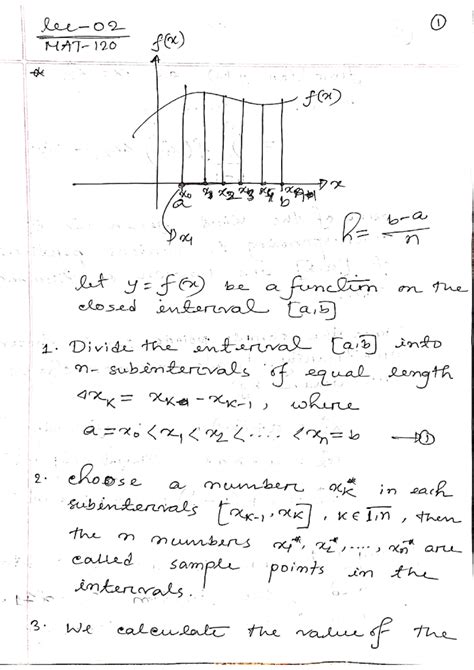 lec-02
MAT-120
①
f(x)
f(x)
x₀ x₁ x₂ x₃ x₄ x
a b
Δx₁
h = b-a/n
let y = f(x) be a function on the
closed interval [a,b]
1. Divide the interval [a,b] into
n-subintervals of equal length
Δx_K = x_K - x_{K-1}, where
a = x₀ < x₁ < x₂ < .... < x_n = b →①
2. choose a number x_K* in each
subintervals [x_{K-1}, x_K], K ∈ 1,n, then
the n numbers x₁*, x₂*, ..., x_n* are
called sample points in the
intervals.
3. We calculate the value of the